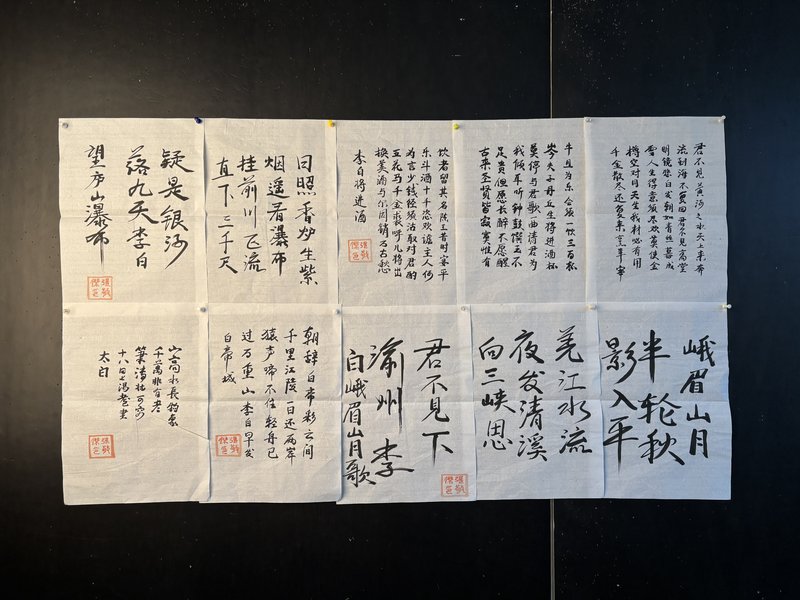 君不见黄河之水天上来奔
流到海不复回君不见高堂
明镜悲白发朝如青丝暮成
雪人生得意须尽欢莫使金
樽空对月天生我材必有用
千金散尽还复来烹羊宰
牛且为乐会须一饮三百杯
岑夫子丹丘生将进酒杯
莫停与君歌一曲请君为
我倾耳听钟鼓馔玉不
足贵但愿长醉不愿醒
古来圣贤皆寂寞惟有
饮者留其名陈王昔时宴平
乐斗酒十千恣欢谑主人何
为言少钱径须沽取对君酌
五花马千金裘呼儿将出
换美酒与尔同销万古愁
李白将进酒
日照香炉生紫
烟遥看瀑布
挂前川飞流
直下三千尺
疑是银河
落九天李白
望庐山瀑布
峨眉山月
半轮秋
影入平
羌江水流
夜发清溪
向三峡思
君不见下
渝州李
白峨眉山月歌
朝辞白帝彩云间
千里江陵一日还两岸
猿声啼不住轻舟已
过万重山李白早发
白帝城
山高水长物象
千万非有老
笔清壮可穷
十八日上阳台书
太白